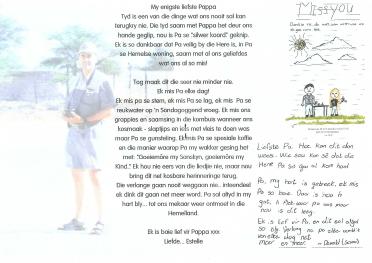 My enigste liefste Pappa
Tyd is een van die dinge wat ons nooit sal kan
terugkry nie. Die tyd saam met Pappa het deur ons
hande geglip, nou is Pa se "silwer koord" geknip.
Ek is so dankbaar dat Pa veilig by die Here is, in Pa
se Hemelse woning, saam met al ons geliefdes
wat ons al mis!
Tog maak dit die seer nie minder nie.
Ek mis Pa elke dag!
Ek mis pa se stem, ek mis Pa se lag, ek mis Pa se
reukwater op 'n Sondagoggend vroeg. Ek mis ons
grappies en saamsing in die kombuis wanneer ons
kosmaak - slaptjips en iets met vleis te doen was
maar Pa se gunsteling. Ek mis Pa se spesiale koffie
en die manier waarop Pa my wakker gesing het
met: "Goeiemôre my Sonskyn, goeiemôre my
Kind." Ek hou nie eers van die liedjie nie, maar nou
bring dit net kosbare herinneringe terug.
Die verlange gaan nooit weggaan nie...inteendeel
ek dink dit gaan net meer word. Pa sal altyd in my
hart bly... tot ons mekaar weer ontmoet in die
Hemelland.
Ek is baie lief vir Pappa xxx
Liefde... Estelle
Miss you
Liefste Pa. Hoe kan dit dan
wees. Wie sou kon sê dat die
Here Pa so gou al kom haal
Pa, my hart is gebreek, ek mis
Pa so baie. Daar is nou 'n
gat. 'n Plek waar pa was nou
is dit leeg.
Ek is lief vir Pa, en dit sal altyd
so bly. Verlang na pa elke
dag net
meer en meer.